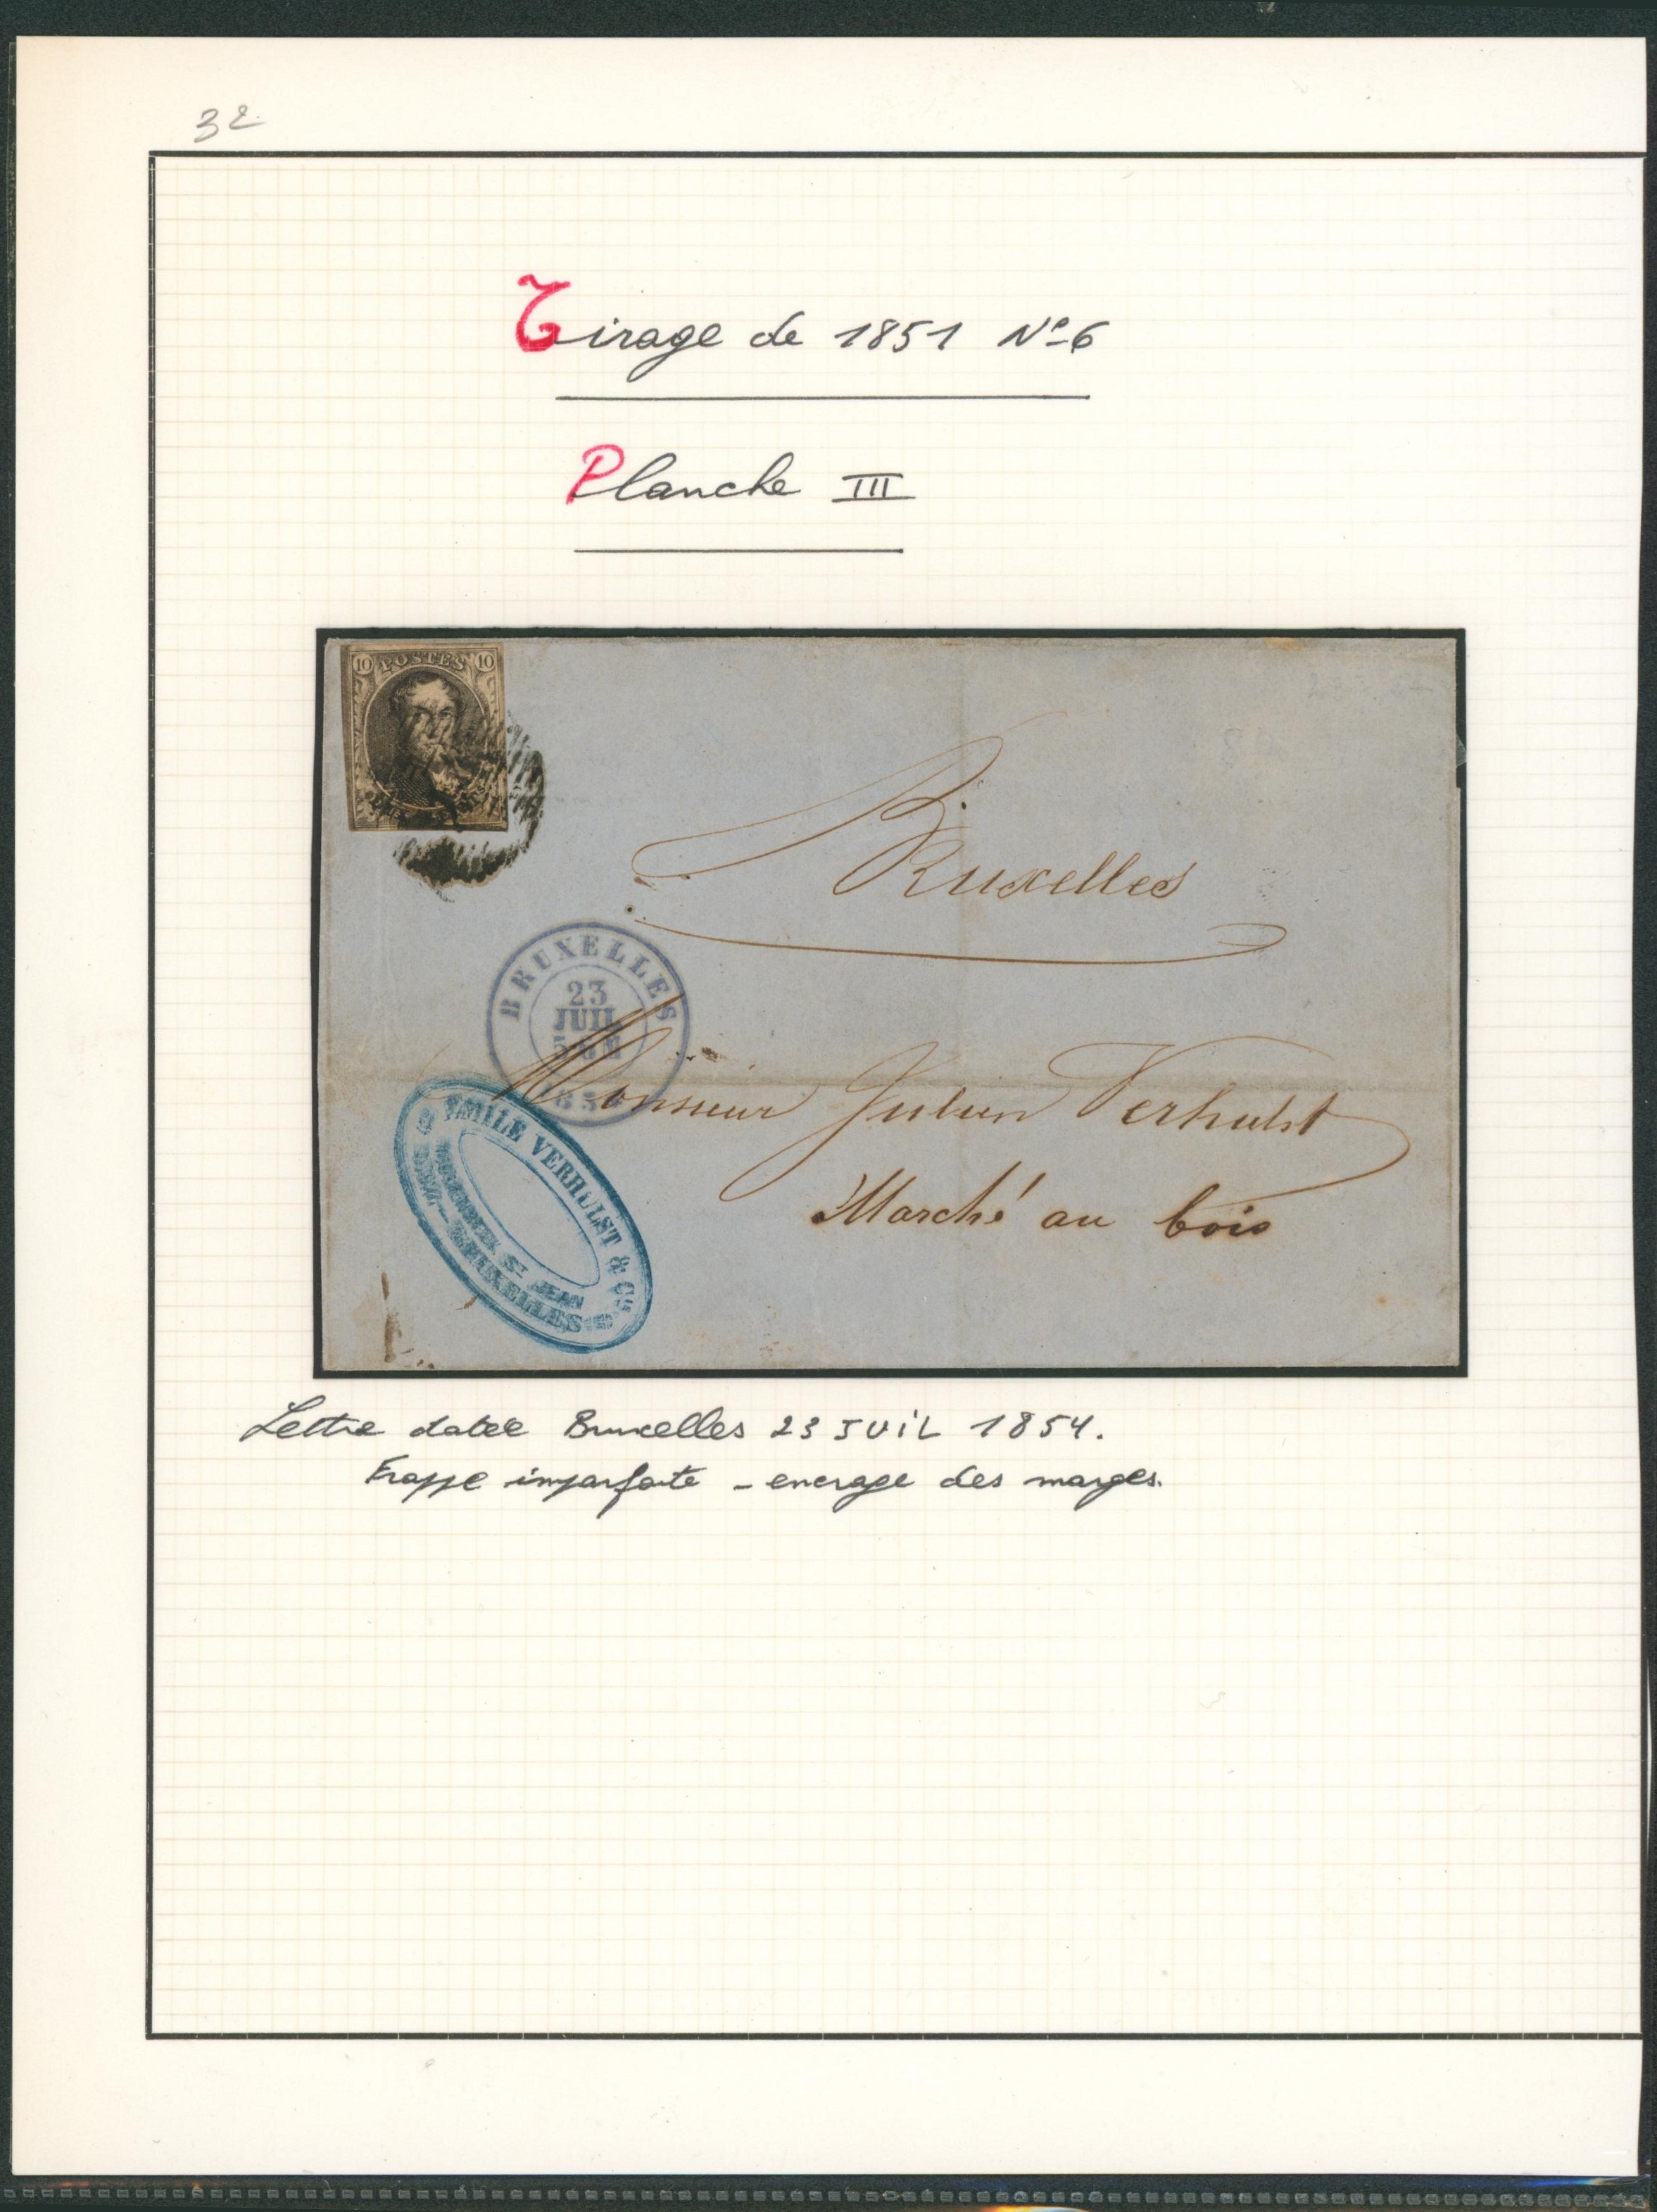 32
Tirage de 1851 Nº 6
Planche III
10 POSTES 10
Bruxelles
BRUXELLES
23
JUIL
Monsieur Julien Verhulst
Marché au bois
EMILE VERHULST & Cie
MOLENBEEK St JEAN
BRUXELLES
Lettre datée Bruxelles 23 JUIL 1854.
Frappe imparfaite - encrage des marges.